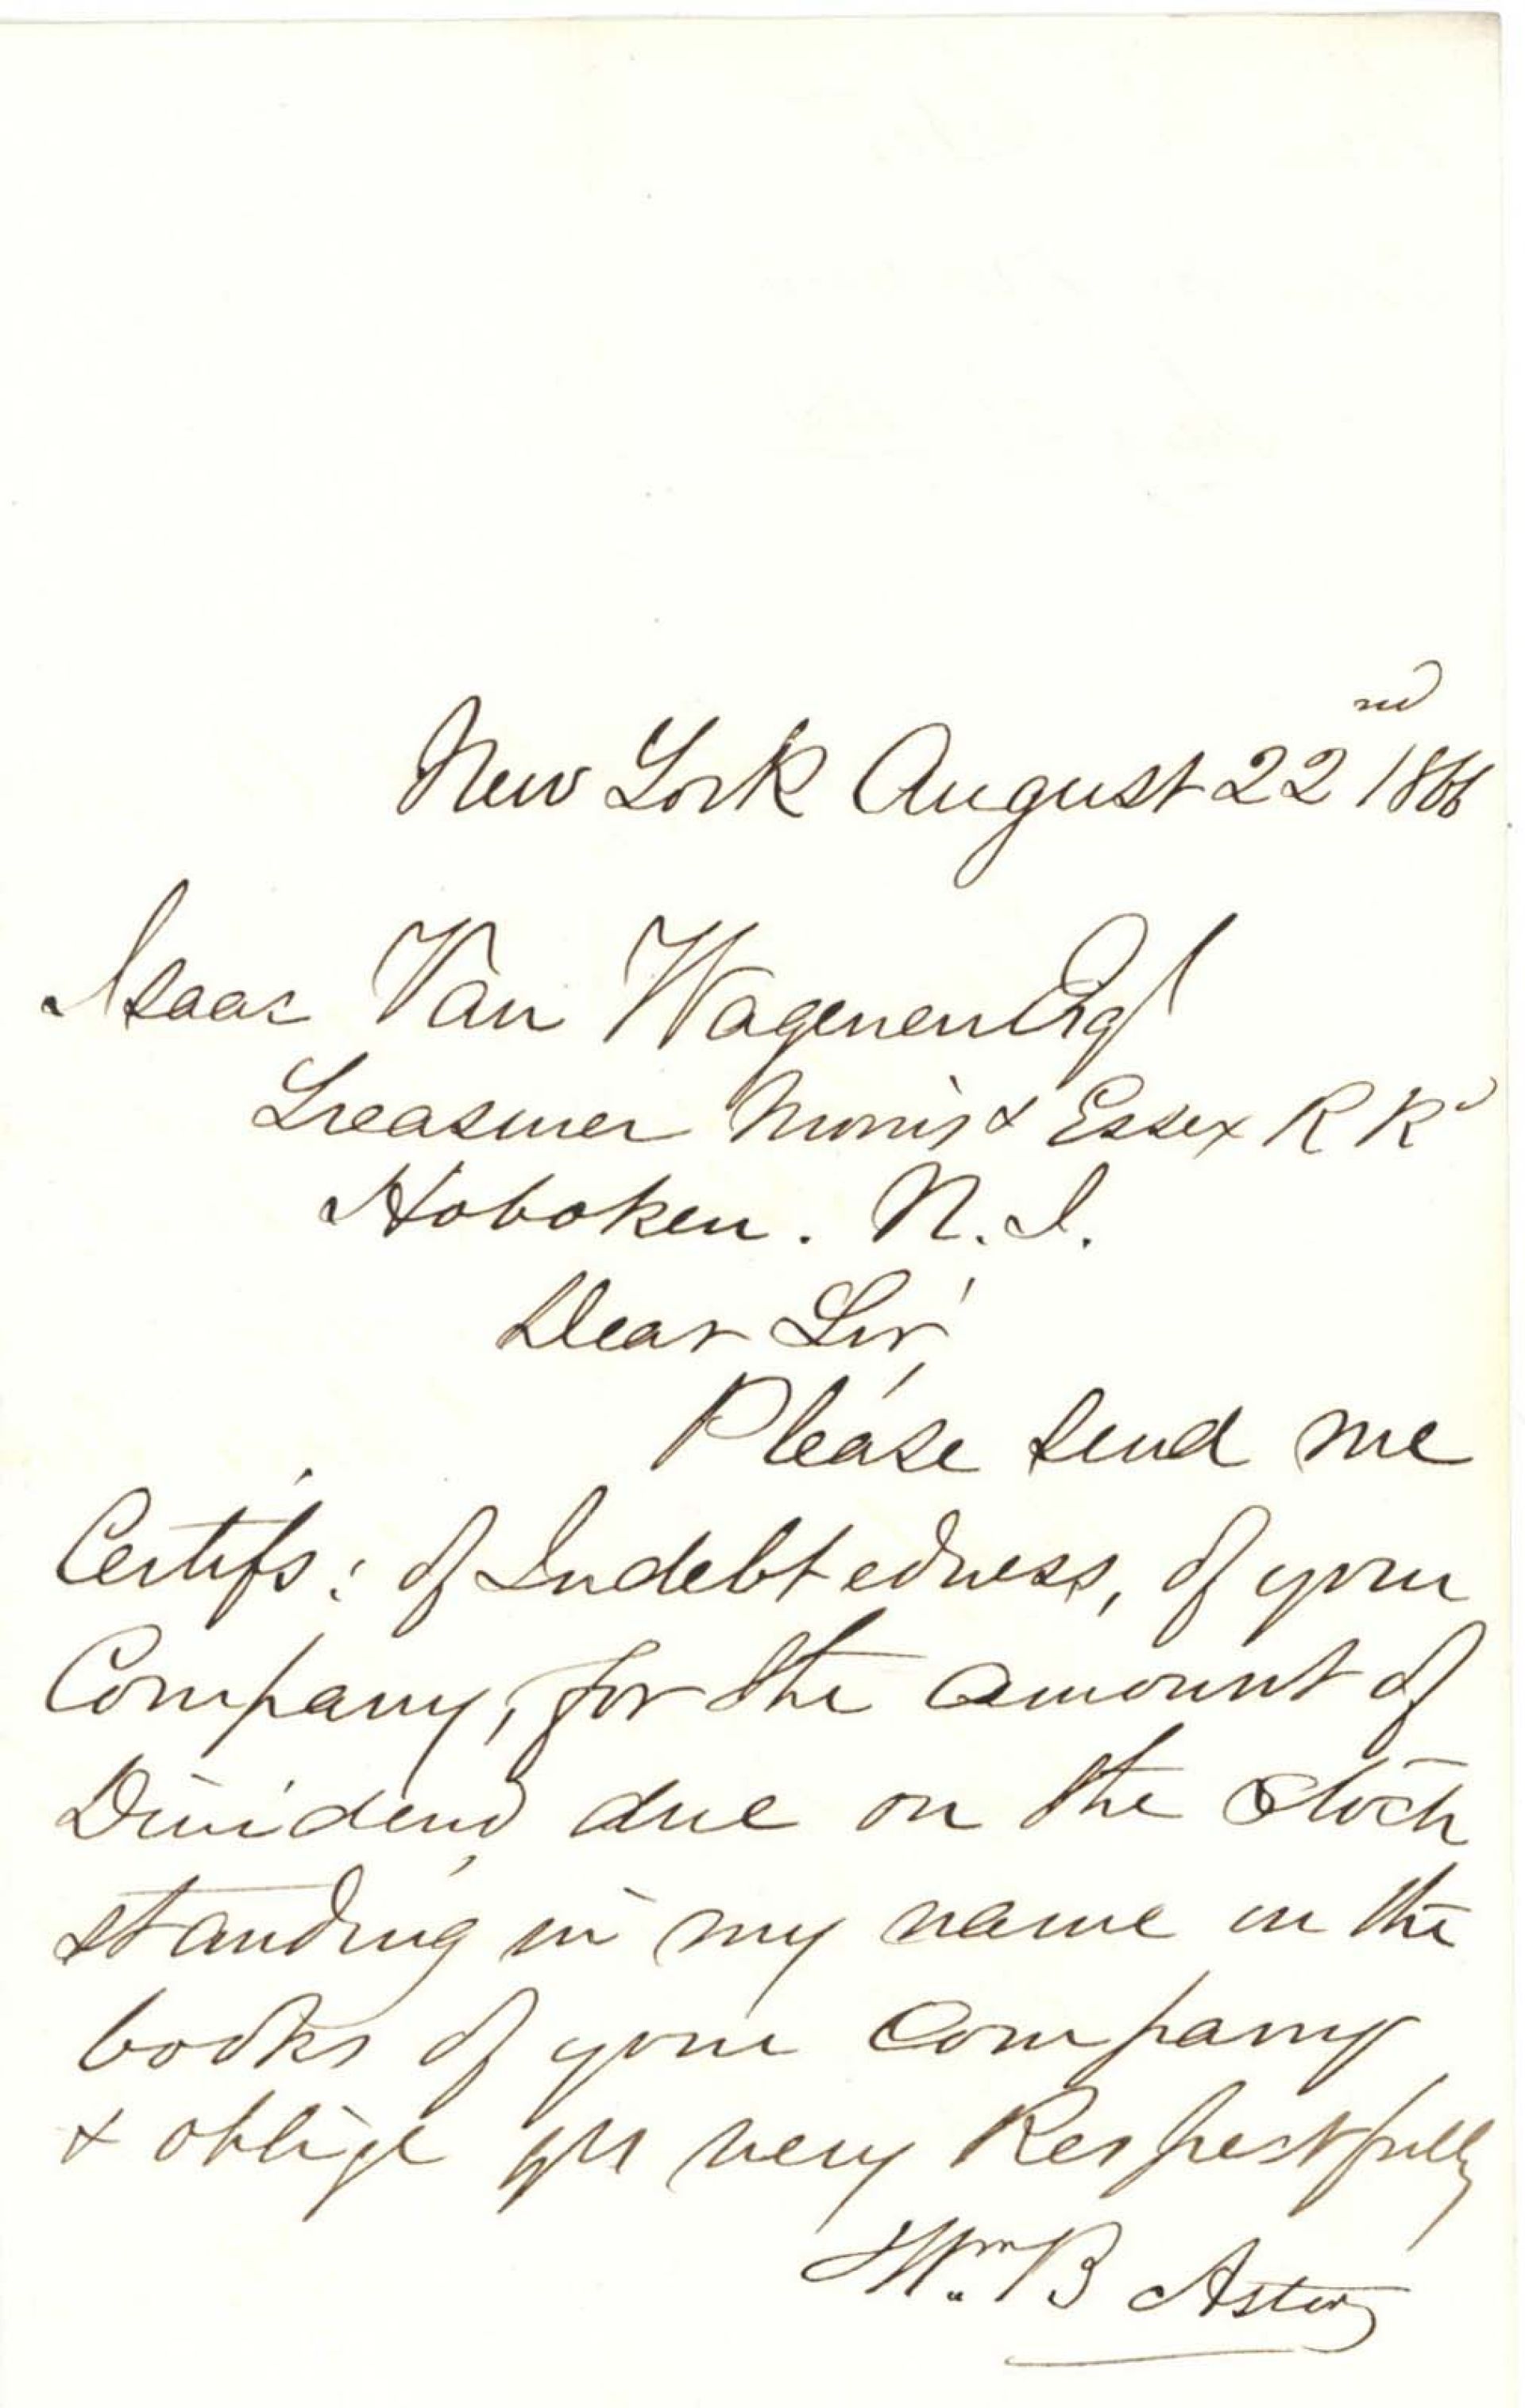 New York August 22nd 1866
Isaac Van Wagenen Esq
Treasurer Morris & Essex R Rd
Hoboken. N. J.
Dear Sir,
Please send me
Certifs: of Indebtedness, of your
Company, for the amount of
Dividend due on the stock
standing in my name in the
books of your Company
& oblige yrs very Respectfully
Wm B Astor